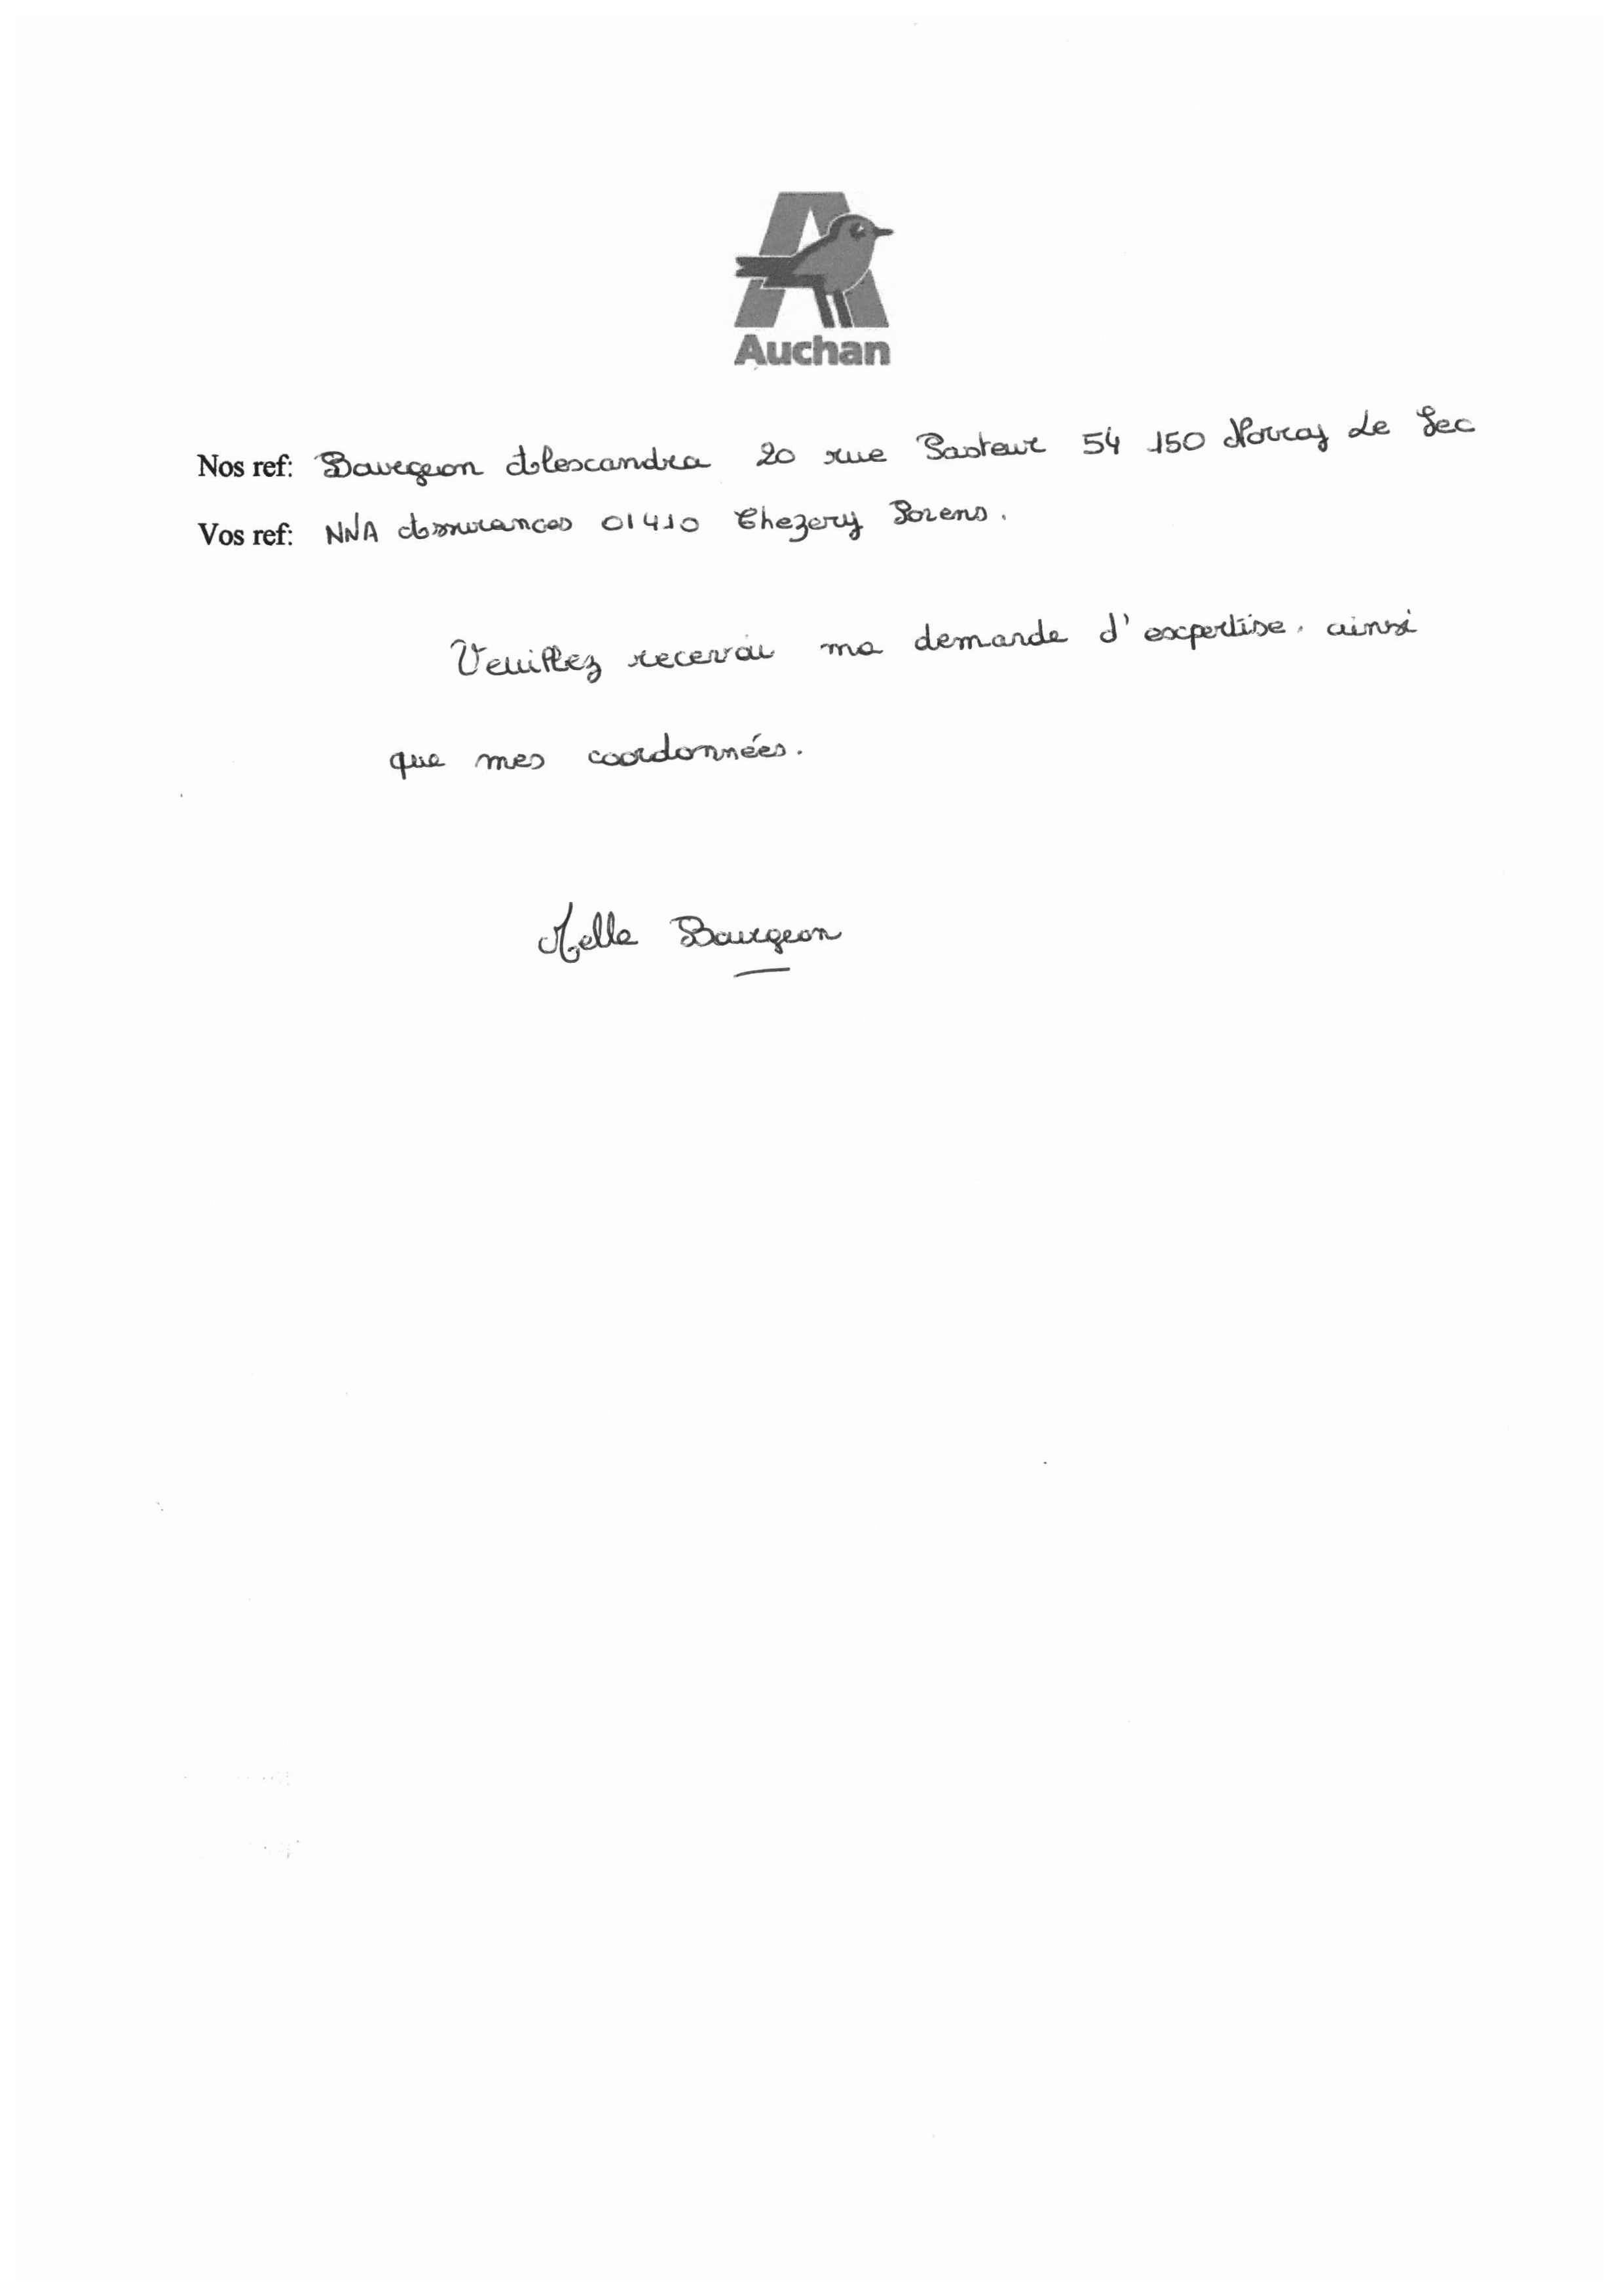 Auchan
Nos ref: Bourgeon Alexandra 20 rue Pasteur 54 150 Norroy Le Sec
Vos ref: NNA Assurances 01410 Chezery Forens.
Veuillez recevoir ma demande d'expertise, ainsi
que mes coordonnées.
Melle Bourgeon